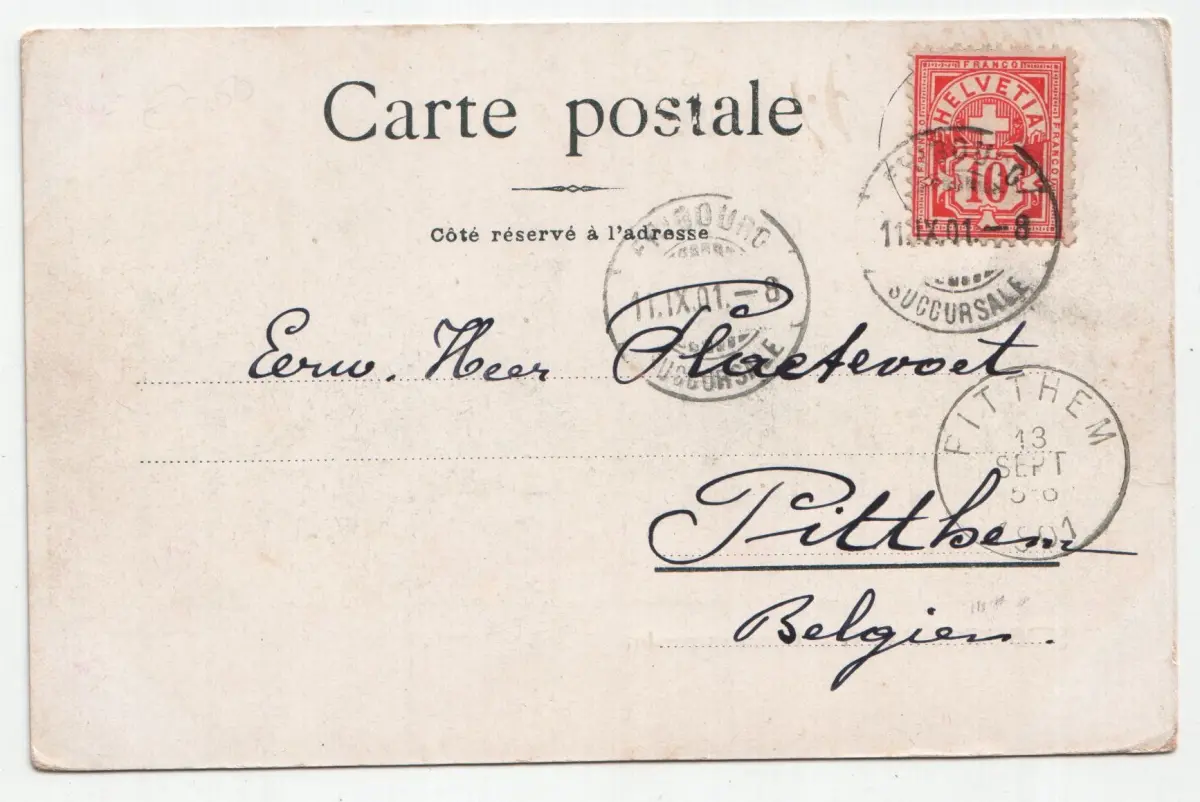 Carte postale
FRANCO
HELVETIA
FRANCO
FRANCO
10
Côté réservé à l'adresse
FRIBOURG
11.IX.01.–8
SUCCURSALE
FRIBOURG
11.IX.01.–8
SUCCURSALE
Eerw. Heer Plaetevoet
PITTHEM
13
SEPT
5-6
1901
Pitthem
Belgien.